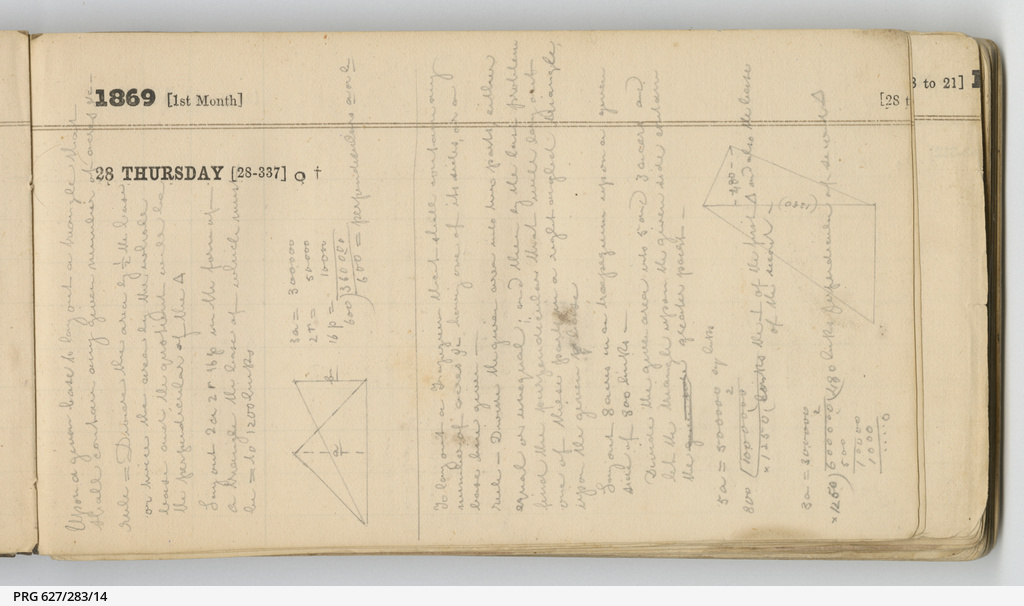 1869 [1st Month]
28 THURSDAY [28-337]
3 to 21]
[28 t
Upon a given base to lay out a triangle that
shall contain any given number of acres &c -
rule = Divide the area by ½ the base
or twice the area by the whole
base and the quotient will be
the perpendicular of the Δ
Lay out 3a 2r 16p in the form of
a triangle the base of which must
be = to 1200 links
3a = 300000
2r = 50000
16p = 10000
600)360000
600 = perpendiculars
To lay out a Trapezium that shall contain any
number of acres &c having one of its sides, or a
base line given -
rule - Divide the given area into two parts either
equal or unequal; and then by the last problem
find the perpendicular that will lay out
one of these parts in a right angled triangle,
upon the given base
Lay out 8 acres in a trapezium upon a given
side of 800 links -
Divide the given area into 5 and 3 acres and
let the triangle upon the given side contain
the greater part -
5a = 500000 sq links
2
800)1000000
1250 links the of the first Δ and also the base
of the second
3a = 300000
2
1250)600000(480 links perpendicular of second Δ
5000
10000
10000
a
b
480
(1250)
PRG 627/283/14